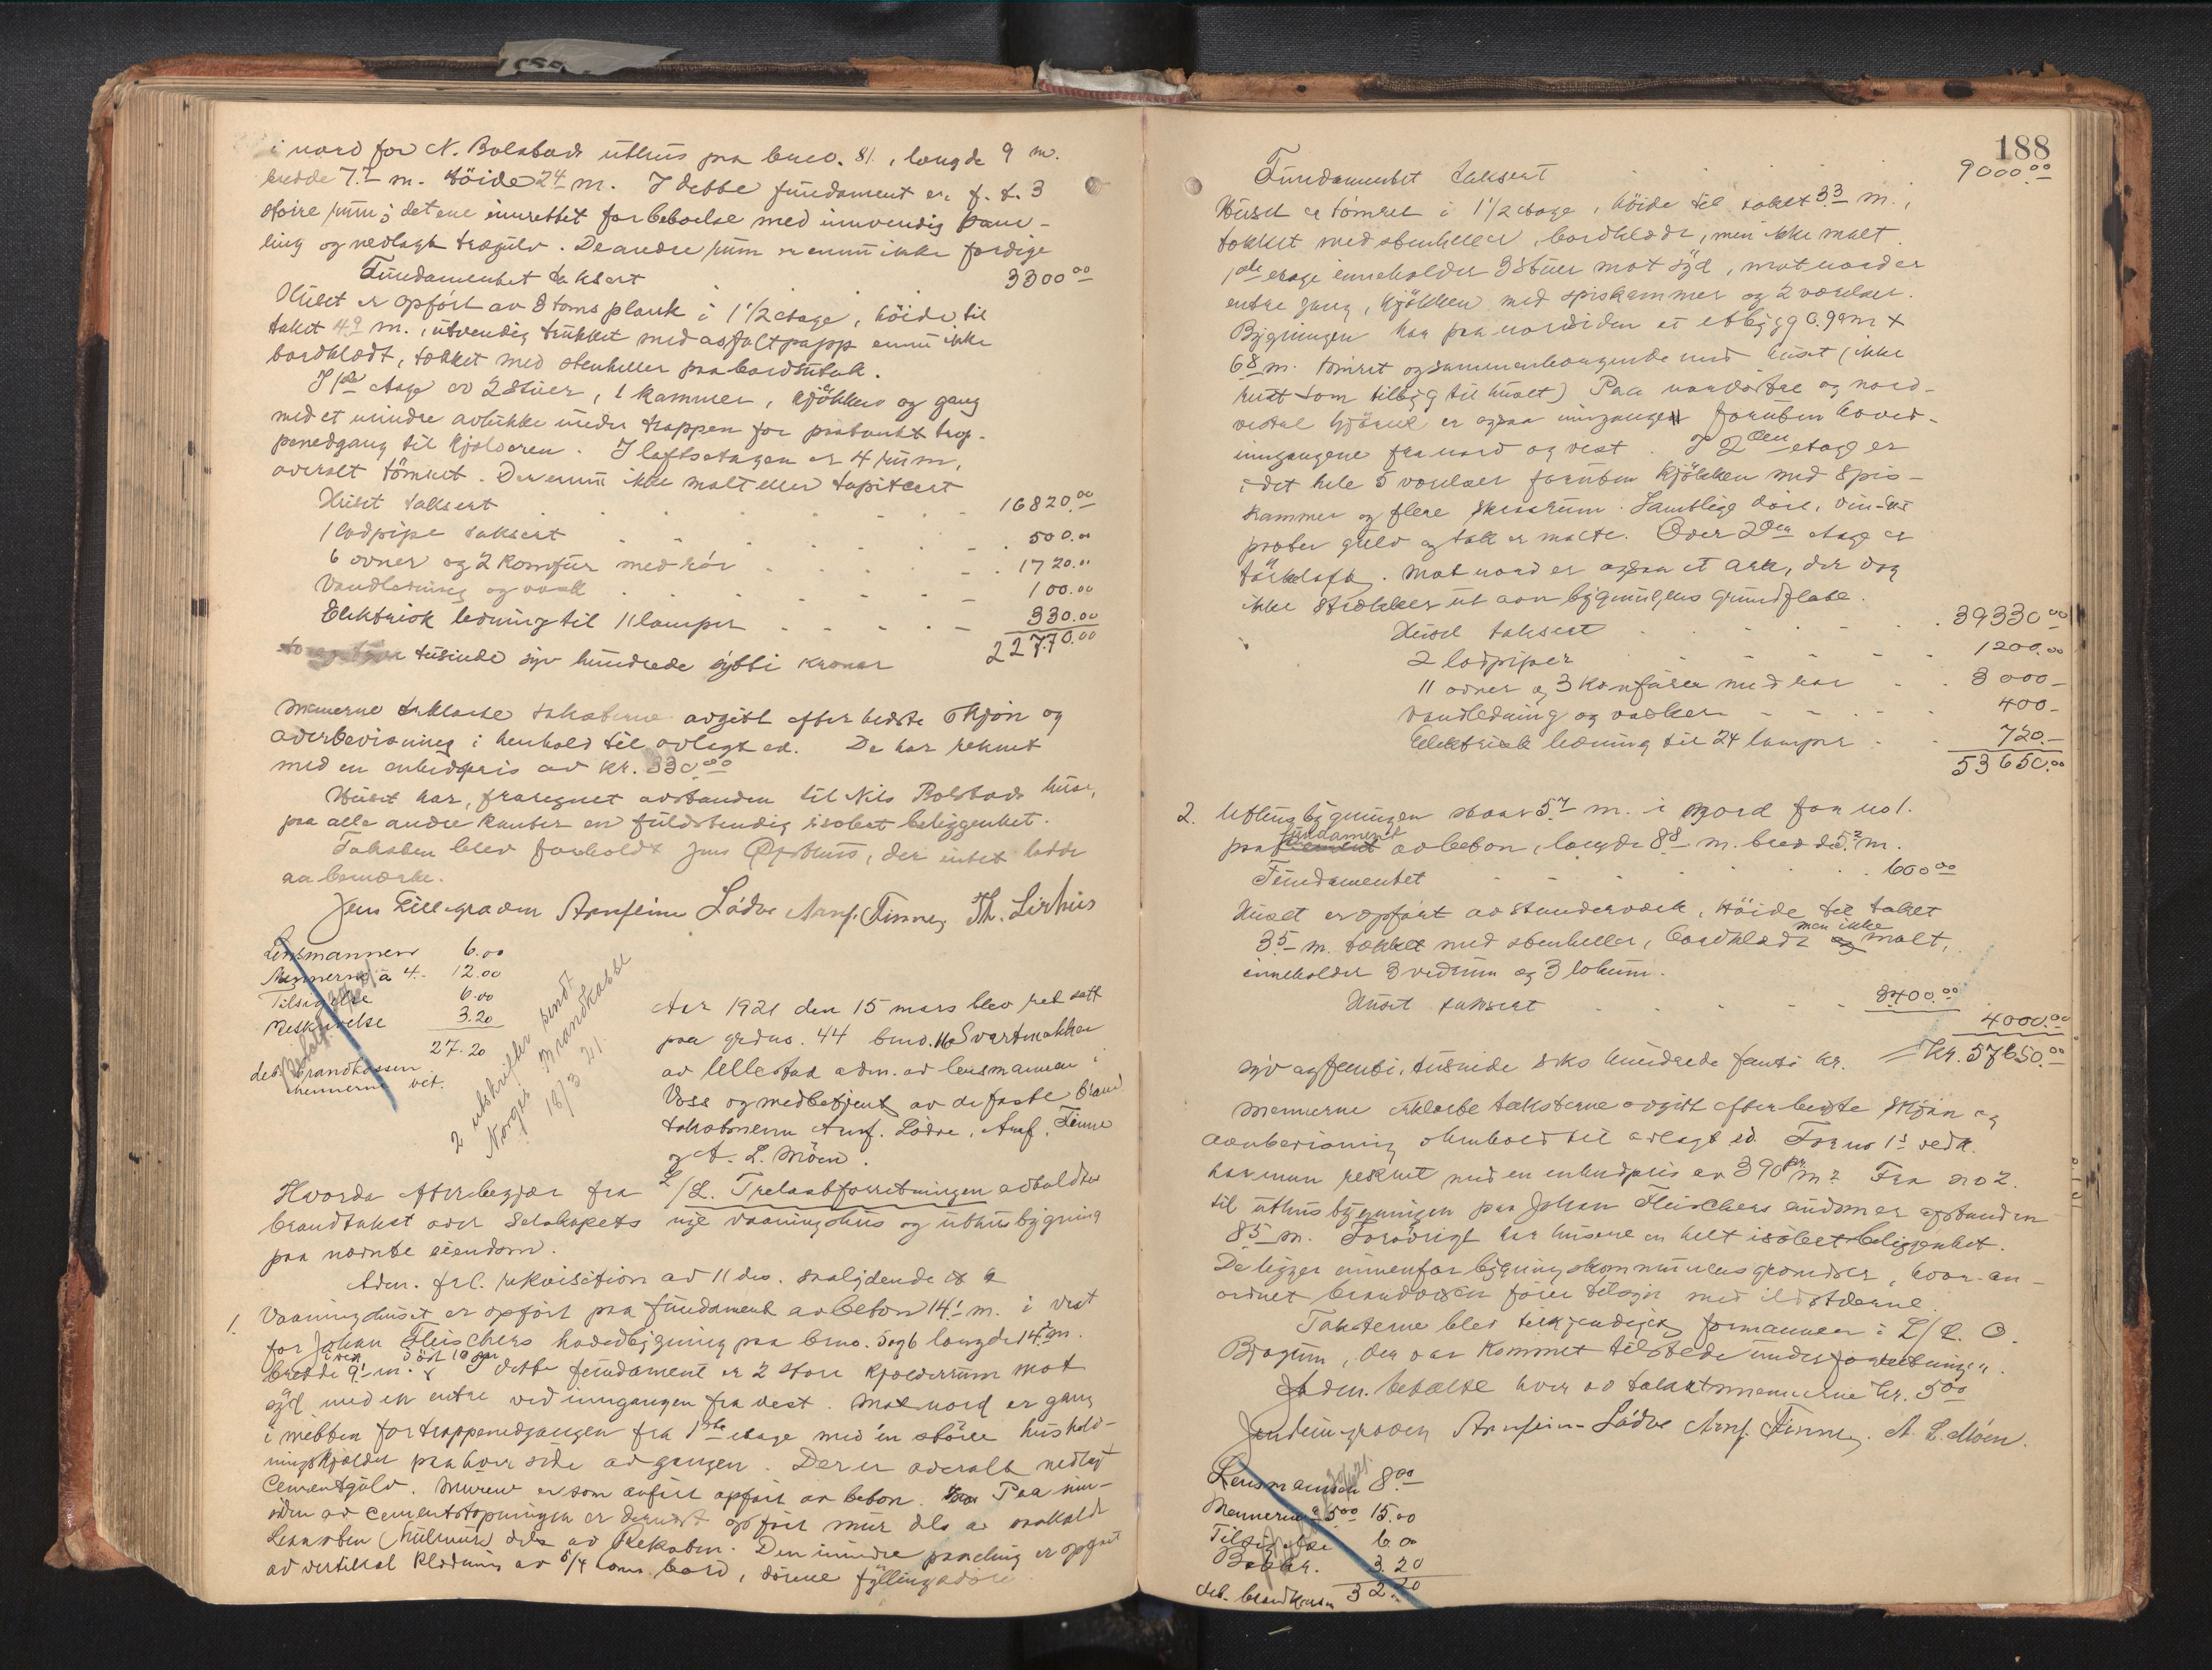 i nord for N. Bolstads uthus paa bno. 81, længde 9 m.
bredde 7.2 m. höide 2.4 m. I dette fundament er f. t. 3
store rum; det ene innrettet for beboelse med innvendig pane-
ling og nedlagt trægulv. De andre rum er ennu ikke færdige
Fundamentet taksert 3300.00
Huset er opfört av 3 toms plank i 1 1/2 etage, höide til
taket 4.9 m., utvendig trukket med asfaltpapp ennu ikke
bordklædt, tækket med stenheller paa bordsutak.
I 1ste etage er 2 stuer, 1 kammer, kjökken og gang
med et mindre avlukke under trappen for trap-
penedgang til kjelderen. I loftsetagen er 4 rum,
overalt tömret. Der ennu ikke malt eller tapitsert
Huset taksert 16820.00
1 lodpipe taksert 500.00
6 ovner og 2 komfur med rör 1720.00
Vandledning og vask 100.00
Elektrisk ledning til 11 lamper 330.00
22770.00
to og tyve tusinde syv hundrede sytti kroner
Mennerne erklærte taksterne avgit efter bedste skjön og
overbevisning i henhold til avlagt ed. De har reknet
med en enhedspris av kr. 330.00
Huset har, fraregnet avstanden til Nils Bolstads huse,
paa alle andre kanter en fuldstendig isolert beliggenhet.
Taksten blev foreholdt Jens, der intet hadde
aa bemerke.
Jens Lillegraven Arnfinn Lödve Arnf. Finne, Th. Lirhus
Lensmannen 6.00
Mennerne à 4.- 12.00
Tilsigelse 6.00
Beskrivelse 3.20
27.20
deb. brandkassen
mennerne vet.
2 utskrifter sendt
Norges Brandkasse
18/3 21.
Aar 1921 den 15 mars blev ret satt
paa grdno. 44 bno. 116 Svartenakken
av Ullestad adm. av lensmannen i
Voss og medbetjent av de faste brand
takstmenn Arnf. Lödve, Arnf. Finne
og A. L. Möen.
Hvorda efter begjær fra L/L. Trelastforretningen avholdtes
brandtakst over selskapets nye vaaningshus og uthusbygning
paa nævnte eiendom.
Adm. frl. rekvisition av 11 ds. saalydende
1. Vaaningshuset er opfört paa fundament av beton 14.1 m. i vest
for Johan Fleischers hovedbygning paa bno. 5 og 6 længde 14.9 m.
i vest i öst 10 m
bredde 9.1 m. I dette fundament er 2 store kjelderrum mot
syd med en entre ved inngangen fra vest. Mot nord er gang
i midten for trappenedgangen fra 1ste etage med én större hushold-
ningskjelder paa hver side av gangen. Der er overalt nedlagt
Cementgulv. Muren er som anfört opfört av beton. Paa inn-
siden av cementstöpningen er dernest opfört mur dels av saakaldt
Lean sten (hulmur) dels av Reksten. Den inndre paneling er opgaat
av vertikal klædning av 5/4 toms bord, dörene fyllingsdöre
188
Fundamentet taksert 9000.00
Huset er tömret i 1 1/2 etage, höide til taket 3.3 m.,
tækket med stenheller, bordklædt, men ikke malt.
1ste etage inneholder 3 stuer mot syd, mot nord er
entre gang, kjökken med spiskammer og 2 værelser.
Bygningen har paa nordsiden et utbygg 0.90 m x
6.8 m. tömret og sammenhængende med huset (ikke
som tilbyg til huset) Paa nordöstre og nord-
vestre hjörne er ogsaa innganger foruten hoved-
inngangene fra nord og vest. I 2den etage er
i det hele 5 værelser foruten kjökken med spis-
kammer og flere skaprum. Samtlige döre, vindus-
poster gulv og tak er malte. Over 2den etage er
törkeloft. Mot nord er ogsaa et ark, der dog
ikke strækker ut over bygningens grundflate.
Huset taksert 39330.00
2 lodpiper 1200.00
11 ovner og 3 komfurer med rör 3000-
Vandledning og vasker 400-
Elektrisk ledning til 24 lamper 720.-
53650.00
2. Uthusbygningen staar 5.7 m. i nord for no 1.
paa fundament av beton, længde 8.8 m. bredde 5.2 m.
Fundamentet 600.00
Huset er opfört av stenderverk, höide til taket
3.5 m. tækket med stenheller, bordklædt men ikke malt,
inneholder 3 vedrum og 3 lokum.
Huset taksert 3400.00
4000.00
Kr. 57650.00
syv og femti tusinde seks hundrede femti kr.
Mennerne erklærte taksterne avgitt efter bedste skjön og
overbevisning i henhold til avlagt ed. For no 1's vedk.
har man reknet med en enhedspris av 390 kr m2. Fra no 2.
til uthusbygningen paa Johan Fleischers eiendom er avstanden
8.5 m. Forövrigt har husene en helt isolert beliggenhet.
De ligger innenfor bygningskommunens grændser, hvor an-
ordnet brandvæsen förer tilsyn med ildstederne.
Taksterne blev tilkjendegit formannen i L/L. O.
Bjorgum, der var kommet tilstede under forretningen.
Adm. betalte hver av takstmennerne kr. 5.00
Jens Lillegraven Arnfinn Lödve Arnf. Finne, A. L. Möen.
Lensmannen 8.00
Mennerne à 5.00 15.00
Tilsigelse 6.00
Beskr. 3.20
deb. brandkassen 32.20